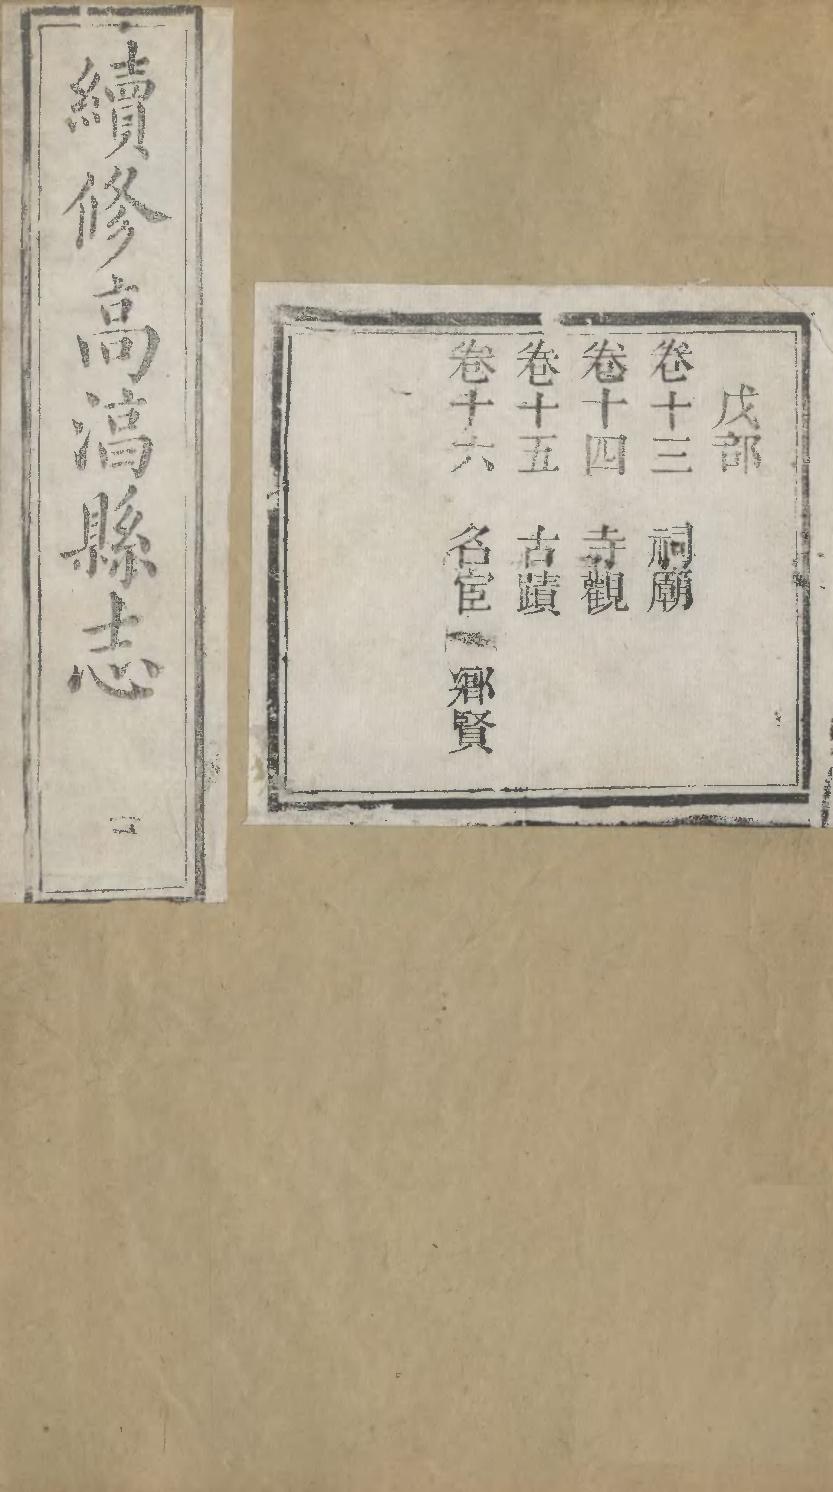 戊部
卷十三 祠廟
卷十四 寺觀
卷十五 古蹟
卷十六 名宦 鄉賢
續修高湻縣志